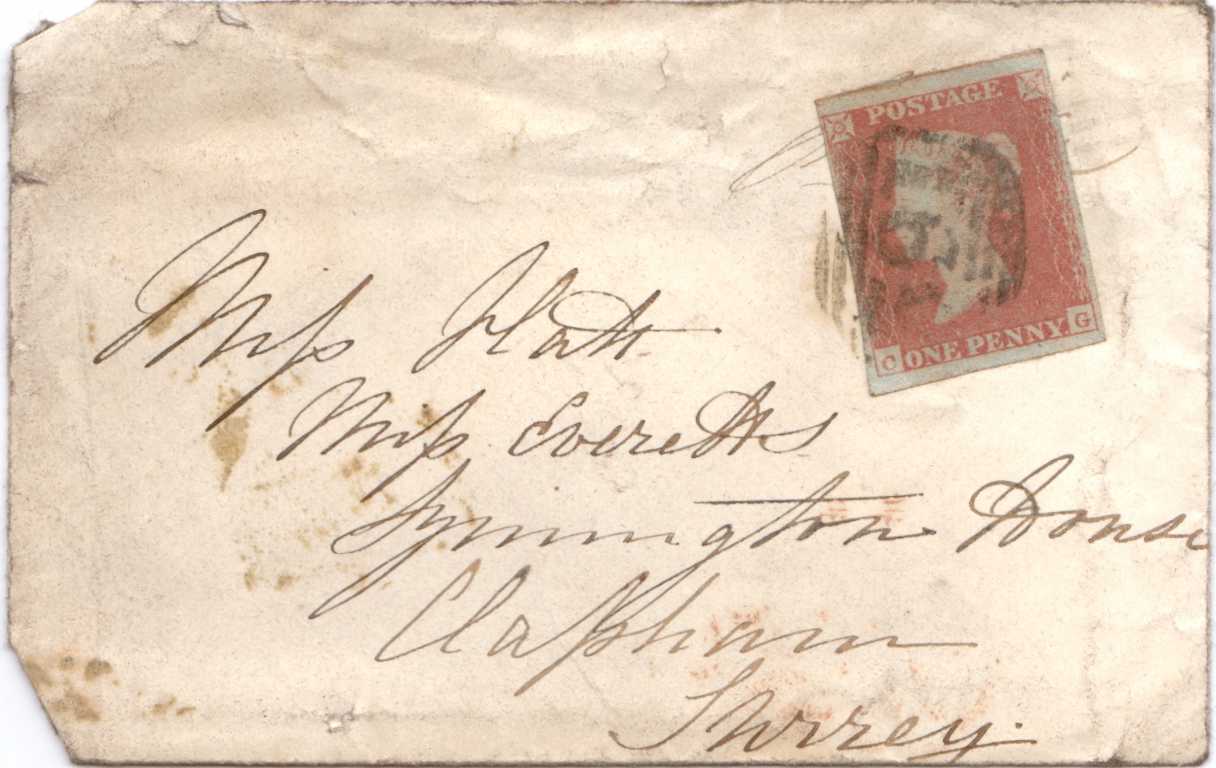 POSTAGE
ONE PENNY
C G
Miss Hatt
Miss Everetts
Lymington House
Clapham
Surrey.